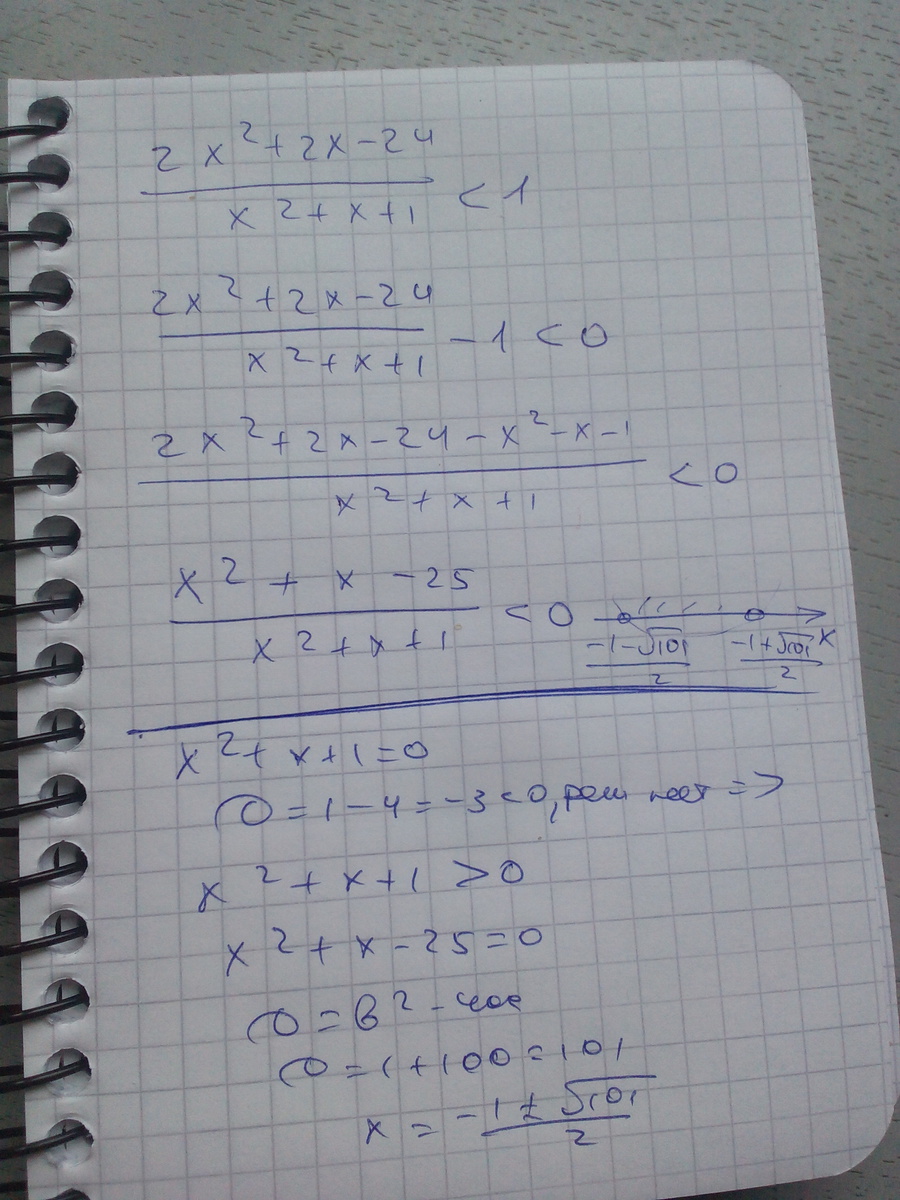 2x²+2x-24
x²+x+1 <1
2x²+2x-24
x²+x+1 -1<0
2x²+2x-24-x²-x-1
x²+x+1 <0
x²+x-25
x²+x+1 <0
-1-√101
2
-1+√101
2
x
x²+x+1=0
D=1-4=-3<0, реш нет =>
x²+x+1>0
x²+x-25=0
D=b²-4ac
D=1+100=101
x=-1±√101
2